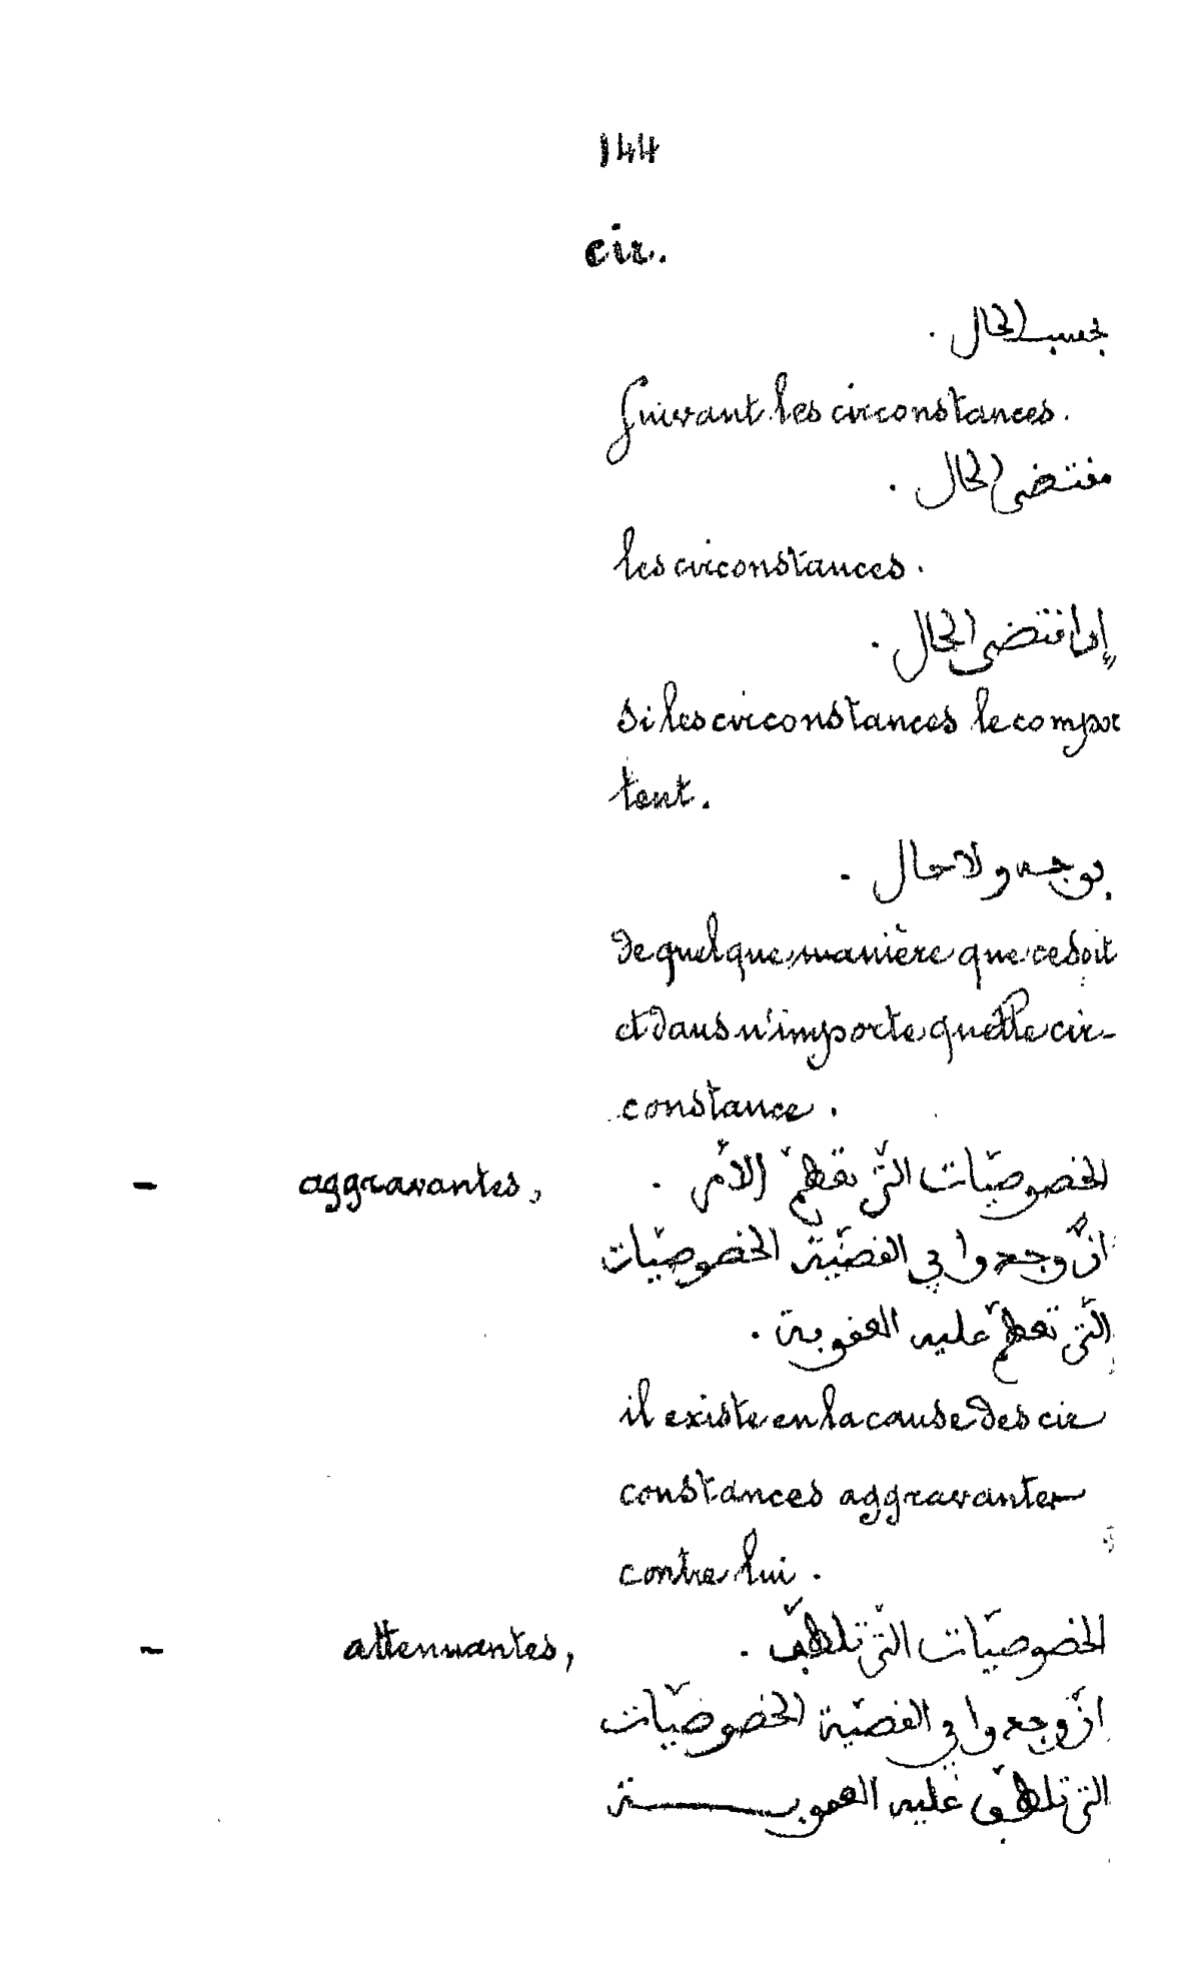 144
cir.
بحسب الحال.
Suivant les circonstances.
مقتضى الحال.
les circonstances.
إذا اقتضى الحال.
Si les circonstances le compor
tent.
بوجه ولا حال.
de quelque manière que ce soit
et dans n'importe quelle cir-
constance.
- aggravantes, الخصوصيّات التّي تعظّم الأمر.
انّ وجدوا في القضيّة الخصوصيّات
التّي تعظّم عليه العقوبة.
il existe en la cause des cir
constances aggravantes
contre lui.
- attenuantes, الخصوصيّات التّي تلطّف.
انّ وجدوا في القضيّة الخصوصيّات
التّي تلطّف عليه العقوبة